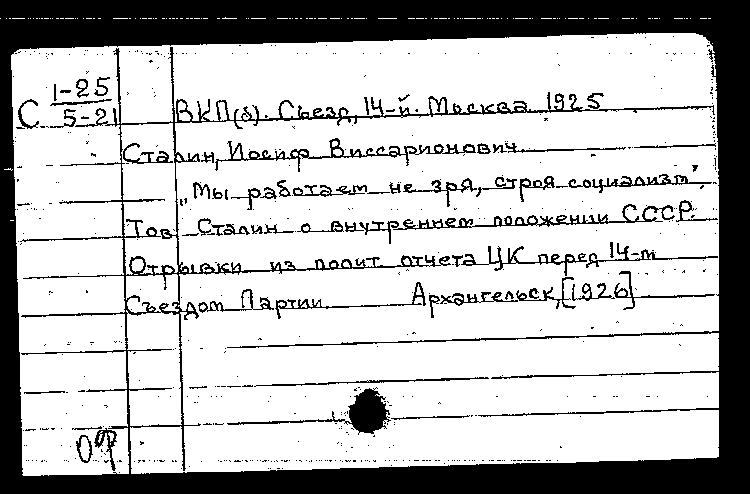 С 1-25
5-21
ВКП(б). Съезд, 14-й. Москва 1925
Сталин, Иосиф Виссарионович.
„Мы работаем не зря, строя социализм",
Тов Сталин о внутреннем положении СССР.
Отрывки из полит отчета ЦК перед 14-м
Съездом Партии. Архангельск, [1926]